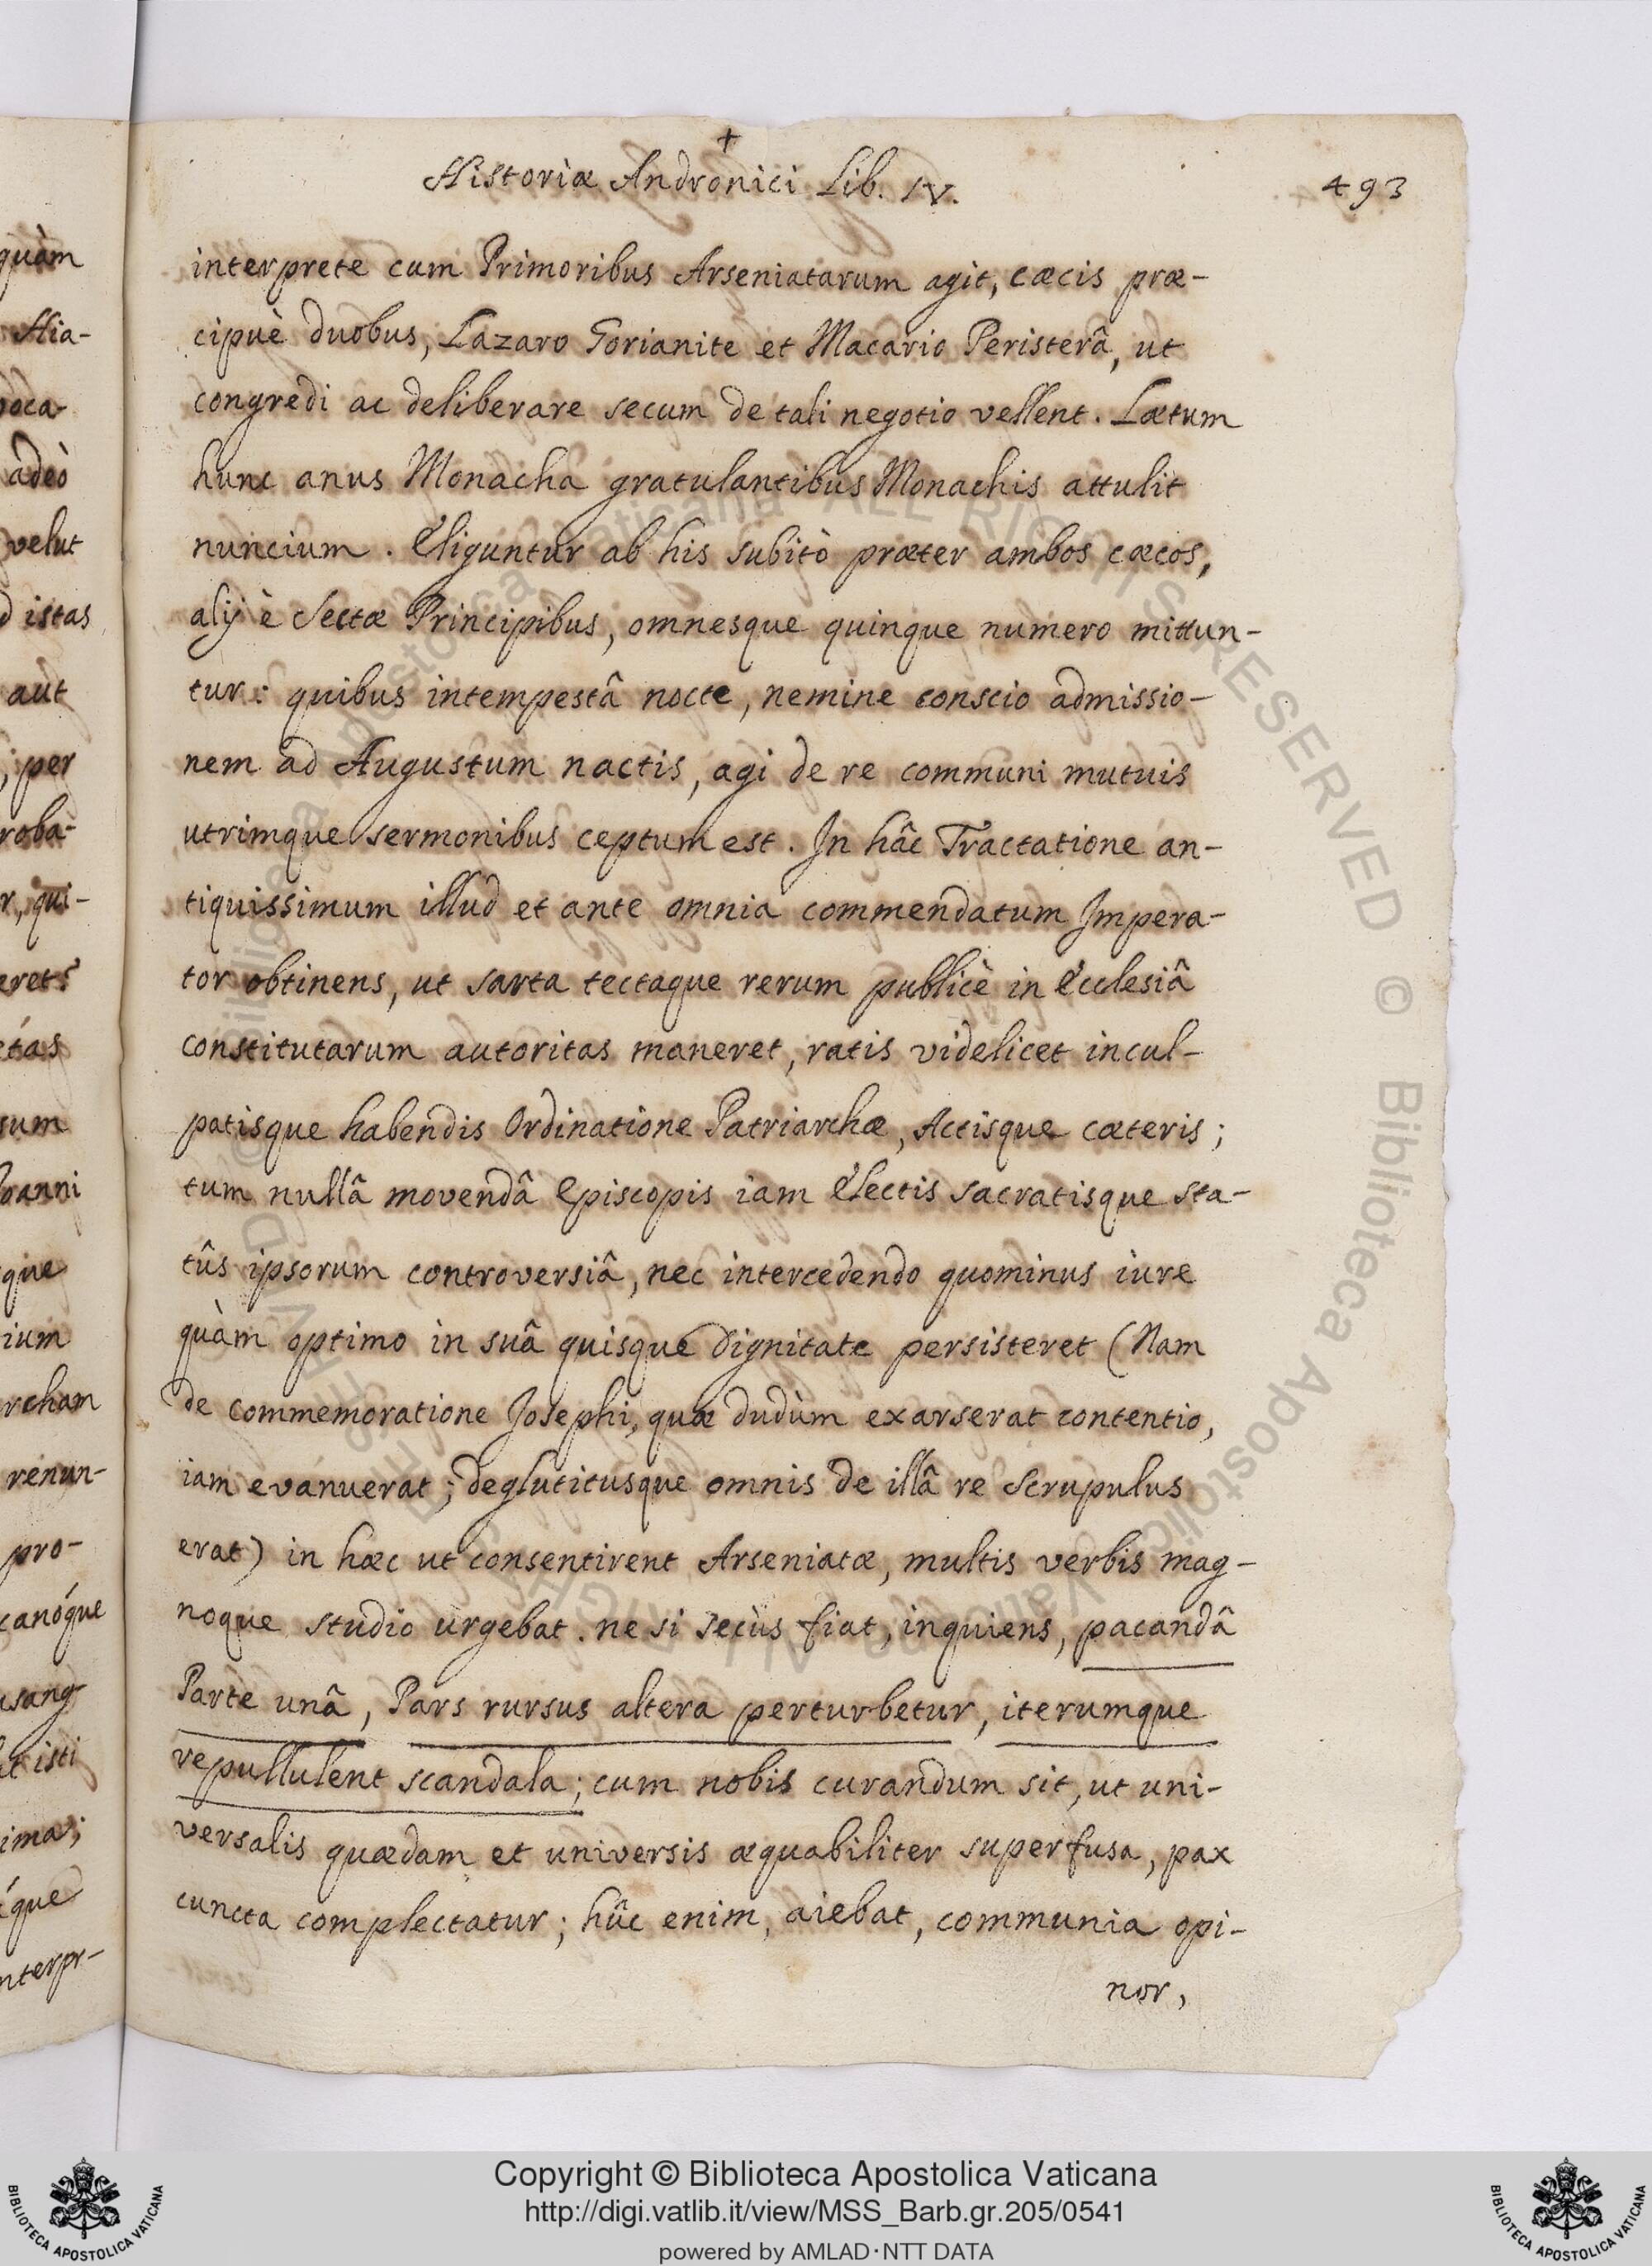 +
Historiæ Andronici Lib. IV. 493
interprete cum Primoribus Arseniatarum agit, cæcis præ-
cipuè duobus, Lazaro Gorianite et Macario Peristerâ, ut
congredi ac deliberare secum de tali negotio vellent. Lætum
hunc anus Monacha gratulantibus Monachis attulit
nuncium. Eliguntur ab his subitò præter ambos cæcos,
alij è Sectæ Principibus, omnesque quinque numero mittun-
tur: quibus intempestâ nocte, nemine conscio admissio-
nem ad Augustum nactis, agi de re communi mutuis
utrimque sermonibus ceptum est. In hâc Tractatione an-
tiquissimum illud et ante omnia commendatum Impera-
tor obtinens, ut sarta tectaque rerum publicè in Ecclesiâ
constitutarum autoritas maneret, ratis videlicet incul-
patisque habendis Ordinatione Patriarchæ, Actisque cæteris;
tum nullâ movendâ Episcopis iam Electis sacratisque sta-
tûs ipsorum controversiâ, nec intercedendo quominus iure
quàm optimo in suâ quisque Dignitate persisteret (Nam
de commemoratione Josephi, quæ dudùm exarserat contentio,
iam evanuerat; deglutitusque omnis de illâ re Scrupulus
erat) in hæc ut consentirent Arseniatæ, multis verbis mag-
noque studio urgebat. ne si secùs fiat, inquiens, pacandâ
Parte unâ, Pars rursus altera perturbetur, iterumque
repullulent scandala; cum nobis curandum sit, ut uni-
versalis quædam et universis æquabiliter superfusa, pax
cuncta complectatur; hûc enim, aiebat, communia opi-
nor,
quàm
Hia-
voca-
adeò
velut
istas
aut
; per
roba-
r, qui-
eret:
etás
sum
oanni
que
ium
rcham
renun-
pro-
canóque
usang-
isti
ima;
que
nterpr-
© Biblioteca Apostolica Vaticana ALL RIGHTS RESERVED © Biblioteca Apostolica Vaticana ALL RIGHTS RESERVED
Copyright © Biblioteca Apostolica Vaticana
http://digi.vatlib.it/view/MSS_Barb.gr.205/0541
powered by AMLAD·NTT DATA
BIBLIOTECA APOSTOLICA VATICANA
BIBLIOTECA APOSTOLICA VATICANA